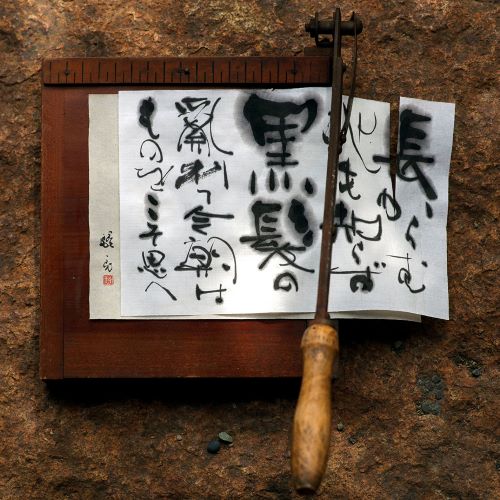 長からむ
心も知らず
黒髪の
亂れて今朝は
ものをこそ思へ